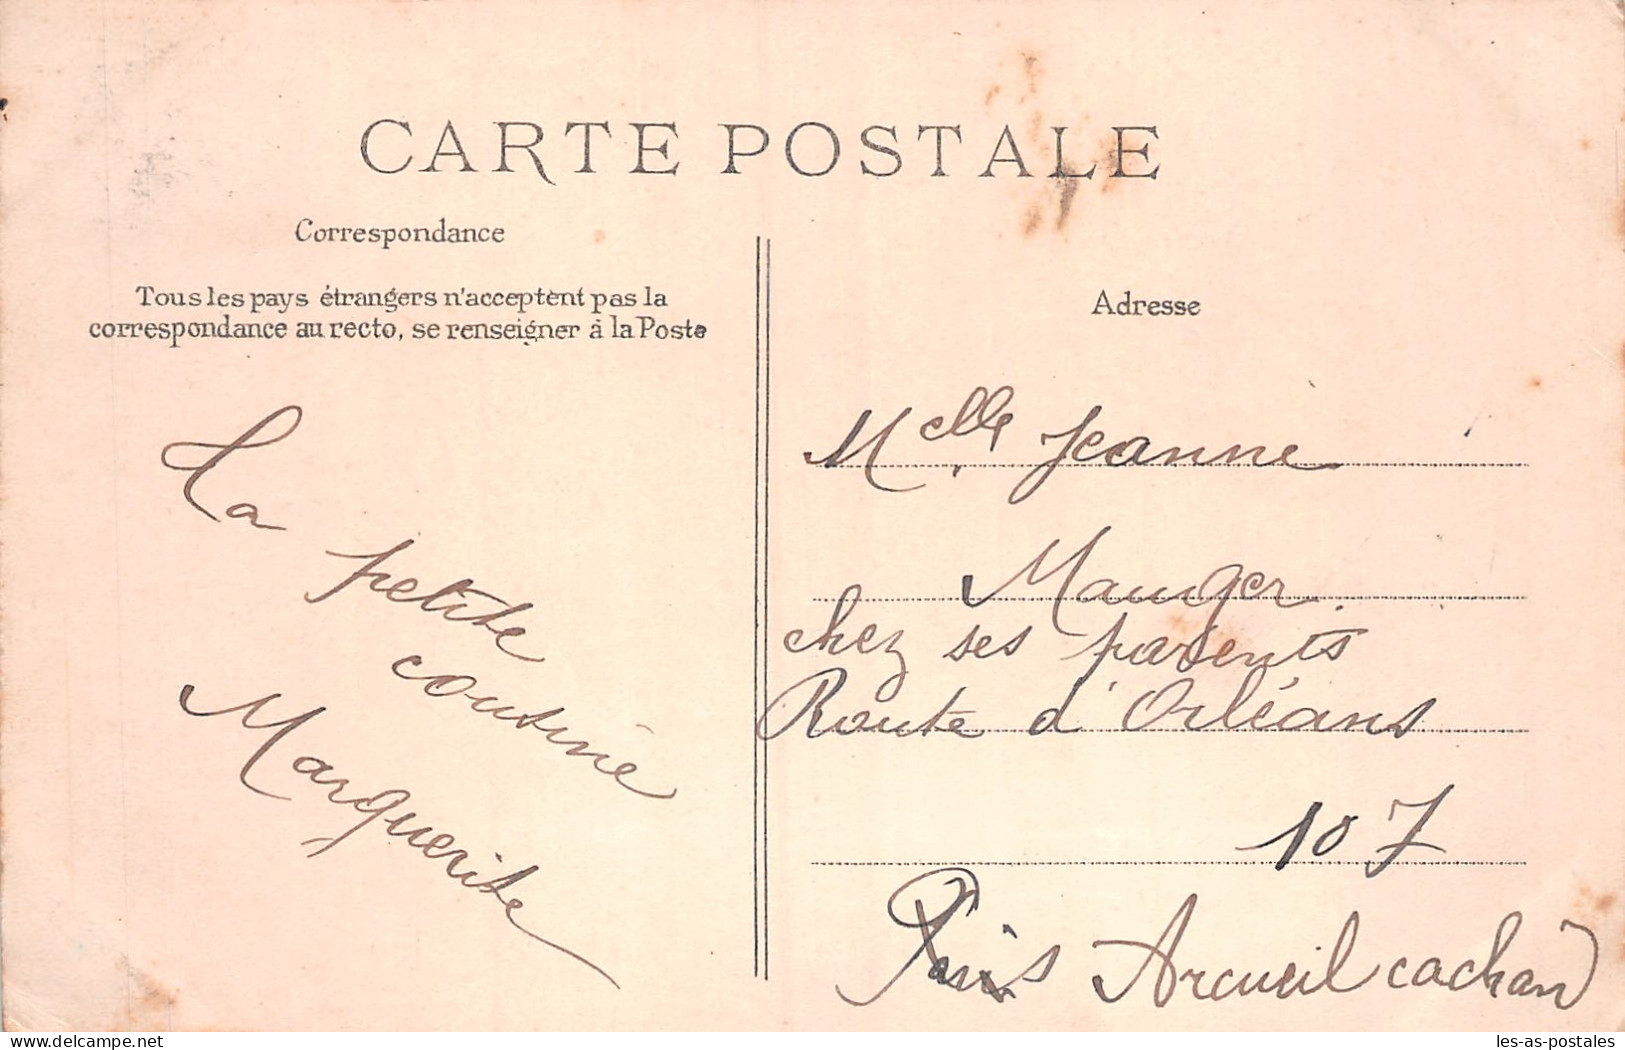 CARTE POSTALE
Correspondance
Tous les pays étrangers n'acceptent pas la
correspondance au recto, se renseigner à la Poste
La
petite
cousine
Marguerite
Adresse
Melle Jeanne
Mauger
chez ses parents
Route d'Orléans
107
Paris Arcueil cachan
delcampe.net
les-as-postales